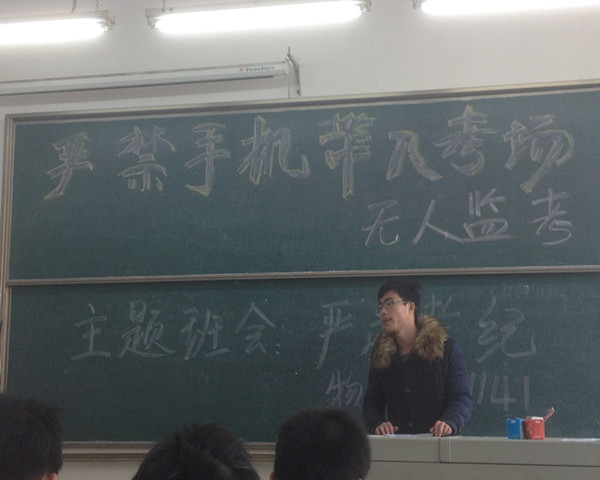 严禁手机带入考场
无人监考
主题班会: 严 纪
物 1141